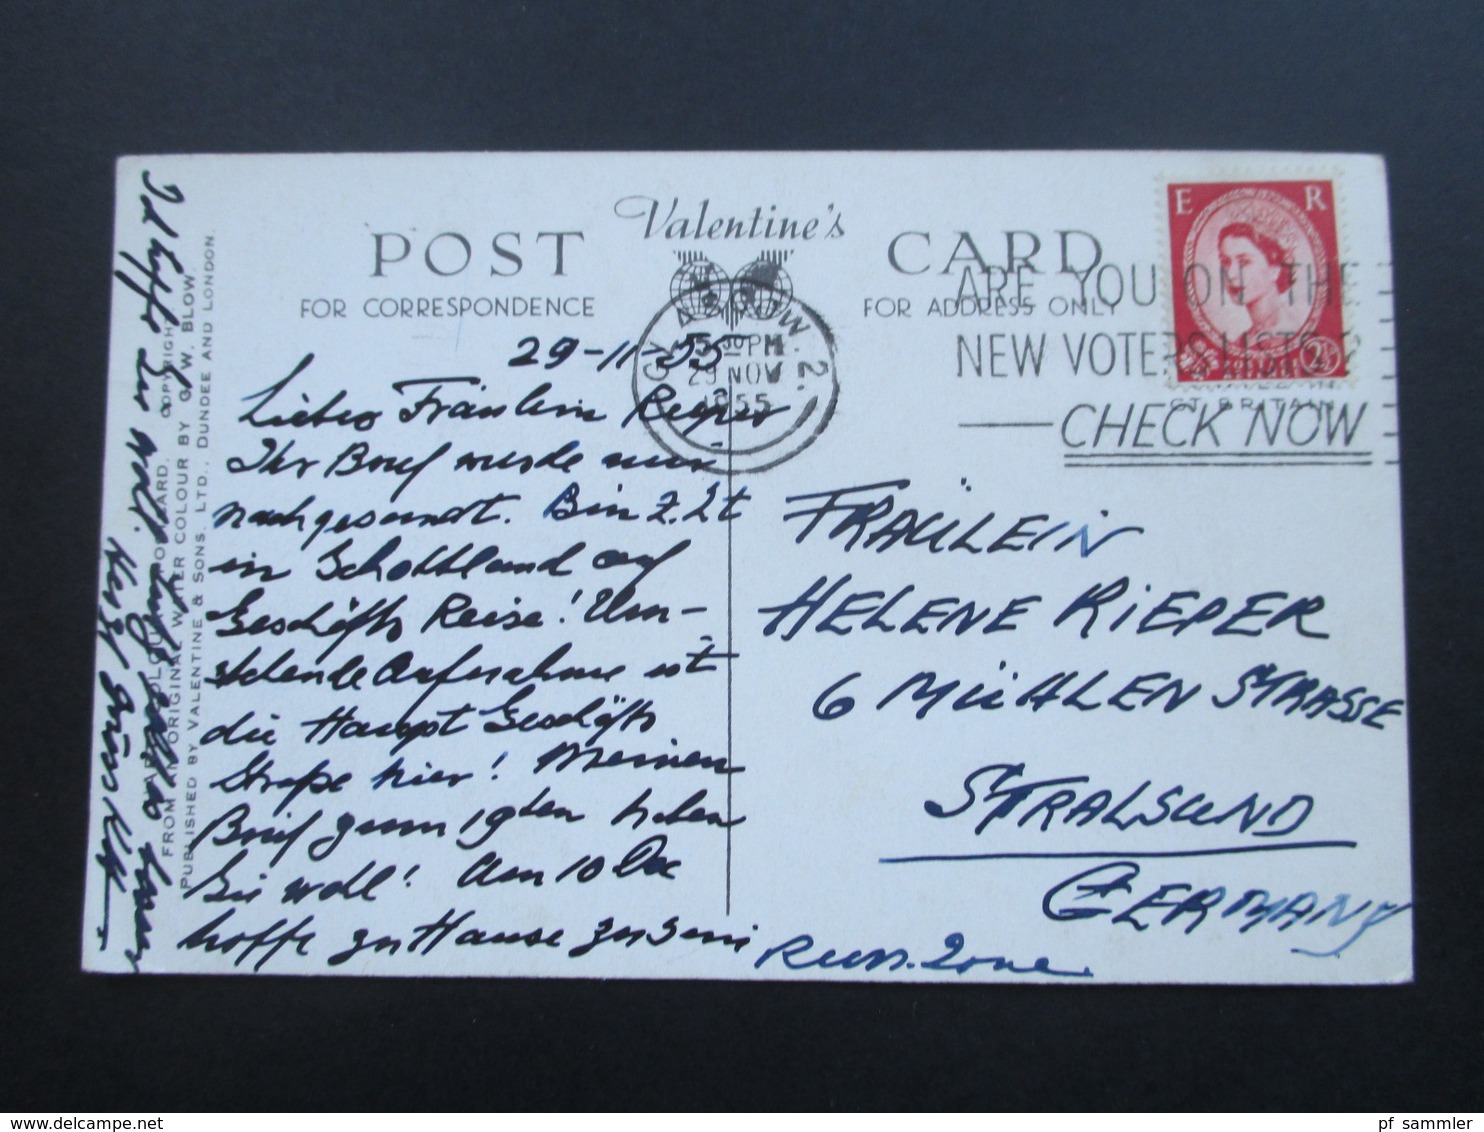 POST Valentine's CARD
FOR CORRESPONDENCE
FOR ADDRESS ONLY
E R
2½
GLASGOW. 2.
5 30 PM
29 NOV
1955
ARE YOU ON THE
NEW VOTERS LIST?
CHECK NOW
GT. BRITAIN
29-11-55
Liebes Fräulein Rieper
Ihr Brief wurde mir
nachgesandt. Bin z. Zt
in Schottland auf
Geschäfts Reise! Um-
stehende Aufnahme ist
die Haupt Geschäfts
Straße hier! Meinen
Brief vom 19ten haben
Sie wohl! Am 10 Dec
hoffe zu Hause zu sein
Ich hoffe
Herzl Gruss
COPYRIGHT
FROM AN ORIGINAL WATER COLOUR BY G. W. BLOW.
PUBLISHED BY VALENTINE & SONS. LTD., DUNDEE AND LONDON.
FRAÜLEIN
HELENE RIEPER
6 MÜHLEN STRASSE
STRALSUND
GERMANY
Russ. Zone.
pf_sammler